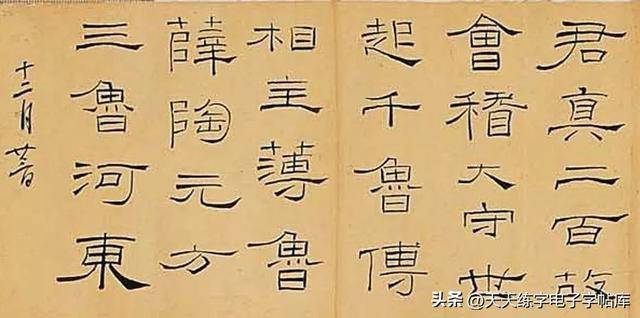 君真二百故
會稽大守世
起千魯傅
相主薄魯
薛陶元方
三魯河東
十二月
头条 @天天练字电子字帖库